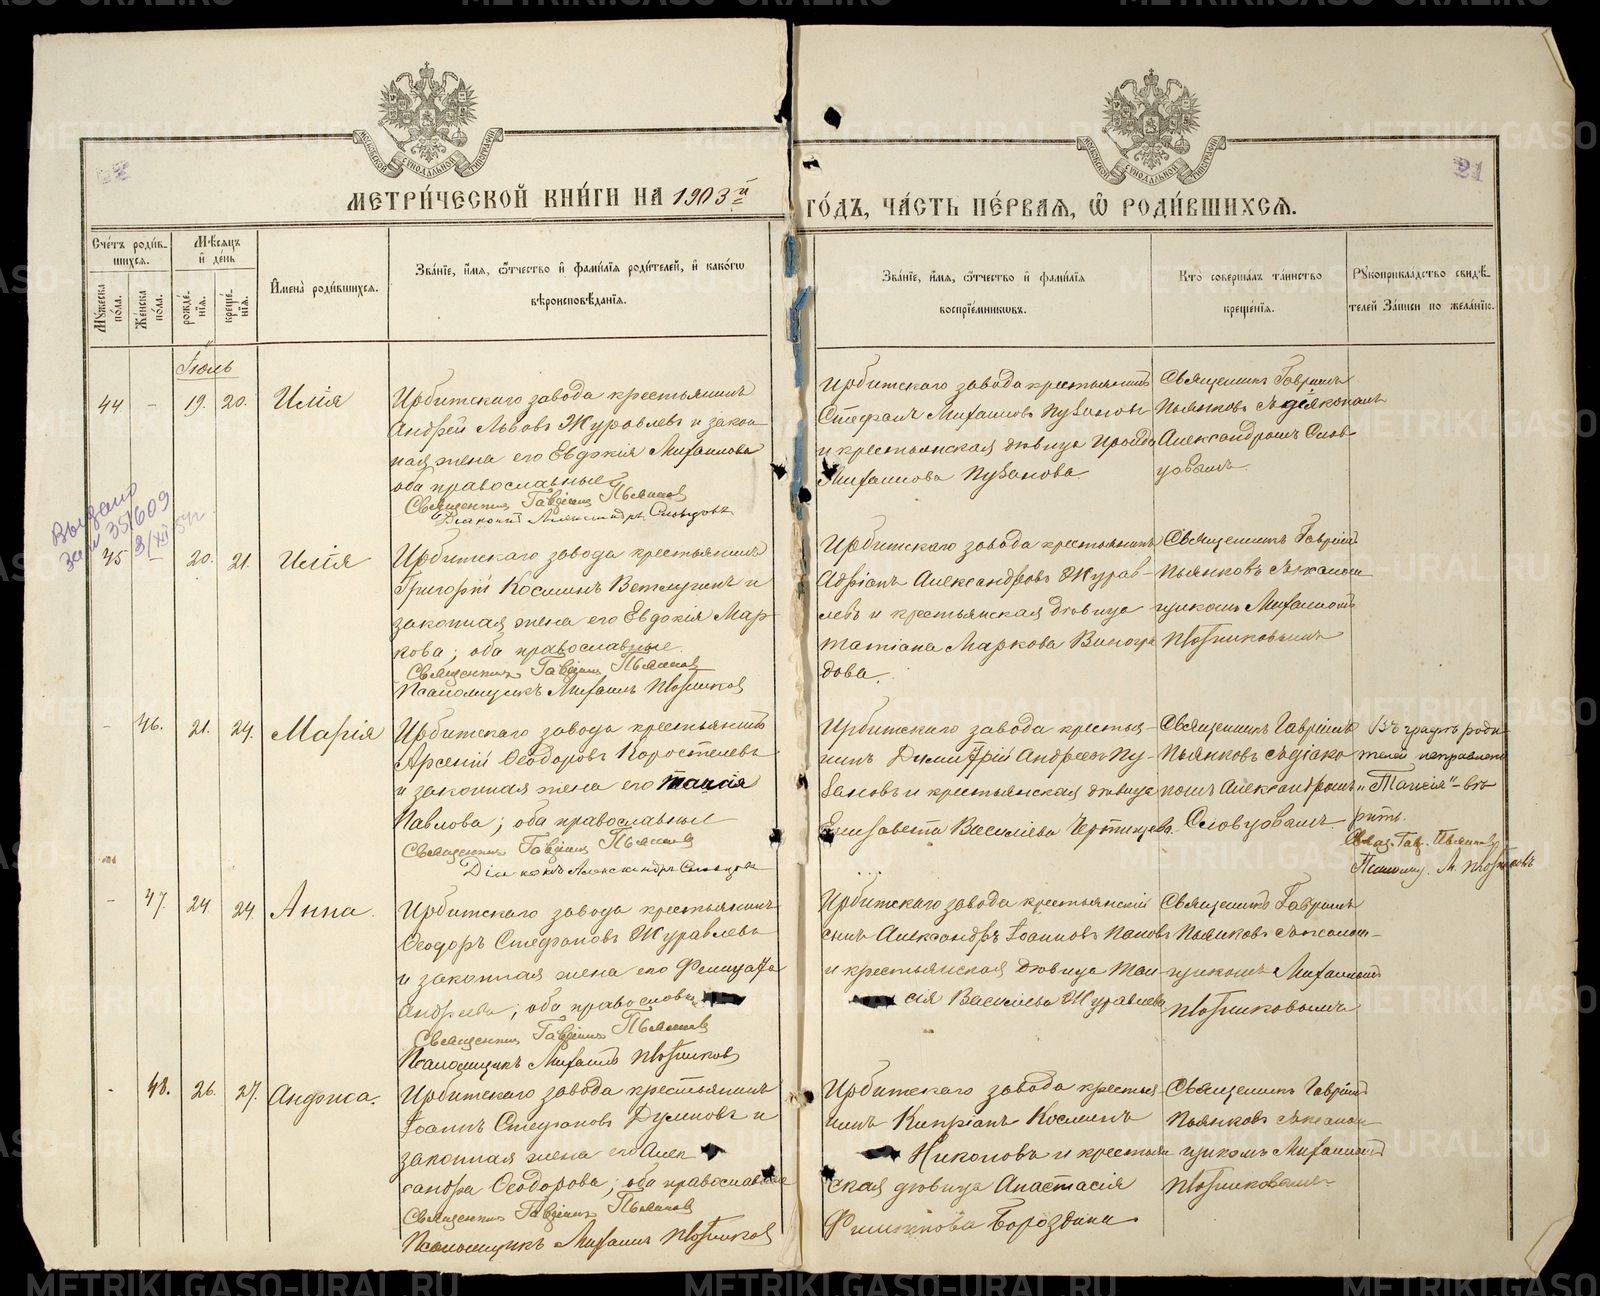 МЕТРИ́ЧЕСКОЙ КНИ́ГИ НА 1903й ГО́ДЪ, ЧА́СТЬ ПЕ́РВАЯ, Ѡ РОДИ́ВШИХСЯ.
21
Сче́тъ роди́в-
шихся.
Му́жеска по́ла.
Же́нска по́ла.
Мѣ́сяцъ и́ де́нь
рожде́нїя.
креще́нїя.
И҆мена̀ роди́вшихся.
Зва́нїе, и҆́мя, ѻ҆́тчество и҆ фами́лїя роди́телей, и҆ како́гѡ
вѣроисповѣ́данїя.
Зва́нїе, и҆́мя, ѻ҆́тчество и҆ фами́лїя
воспрїе́мниковъ.
Кто̀ соверша́лъ та́инство
креще́нїя.
Рукоприкла́дство свидѣ́-
телей за́писи по жела́нїю.
Іюль
44 - 19. 20. Илія
Ирбитскаго завода крестьянинъ
Андрей Львовъ Журавлевъ и закон-
ная жена его Евдокія Михаилова
оба православные
Священникъ Гавріилъ Пьянковъ
Діаконъ Александръ Словцовъ
Ирбитскаго завода крестьянинъ
Стефанъ Михаиловъ Пузановъ
и крестьянская дѣвица Ираида
Михаилова Пузанова.
Священникъ Гавріилъ
Пьянковъ съ діакономъ
Александромъ Слов-
цовымъ.
Выдано
35/609
45 20. 21. Илія
Ирбитскаго завода крестьянинъ
Григорій Косминъ Ветлугинъ и
законная жена его Евдокія Мар-
кова; оба православные.
Священникъ Гавріилъ Пьянковъ
Псаломщикъ Михаилъ Плотниковъ
Ирбитскаго завода крестьянинъ
Адріанъ Александровъ Журав-
левъ и крестьянская дѣвица
Татіана Маркова Виногра
дова.
Священникъ Гавріилъ
Пьянковъ съ псалом
щикомъ Михаиломъ
Плотниковымъ
- 46. 21. 24. Марія
Ирбитскаго завода крестьянинъ
Арсеній Ѳеодоровъ Коростелевъ
и законная жена его Таисія
Павлова; оба православные
Священникъ Гавріилъ Пьянковъ
Діаконъ Александръ Словцовъ
Ирбитскаго завода крестья-
нинъ Димитрій Андреевъ Пу-
зановъ и крестьянская дѣвица
Елисавета Васильева
Священникъ Гавріилъ
Пьянковъ съ діако
номъ Александромъ
Словцовымъ.
Въ графѣ роди
телей исправлено
„Таисія“ - вѣ
рить.
Свящ. Гавр. Пьянковъ
Псаломщ. М. Плотниковъ
- 47. 24. 24. Анна.
Ирбитскаго завода крестьянинъ
Ѳеодоръ Стефановъ Журавлевъ
и законная жена его Фелицата
Андреева; оба православн
Священникъ Гавріилъ Пьянковъ
Псаломщикъ Михаилъ Плотниковъ
Ирбитскаго завода крестьянскій
сынъ Александръ Іоанновъ Пановъ
и крестьянская дѣвица Таи-
сія Васильева Журавлева
Священникъ Гавріилъ
Пьянковъ съ псалом-
щикомъ Михаиломъ
Плотниковымъ
- 48. 26. 27. Анфиса.
Ирбитскаго завода крестьянинъ
Іоаннъ Стефановъ Думновъ и
законная жена его Алек
сандра Ѳеодорова; оба православные
Священникъ Гавріилъ Пьянковъ
Псаломщикъ Михаилъ Плотниковъ
Ирбитскаго завода крестья
нинъ Кипріанъ Косминъ
Никоновъ и крестьян
ская дѣвица Анастасія
Филиппова Бороздина.
Священникъ Гавріилъ
Пьянковъ съ псалом
щикомъ Михаиломъ
Плотниковымъ
METRIKI.GASO-URAL.RU